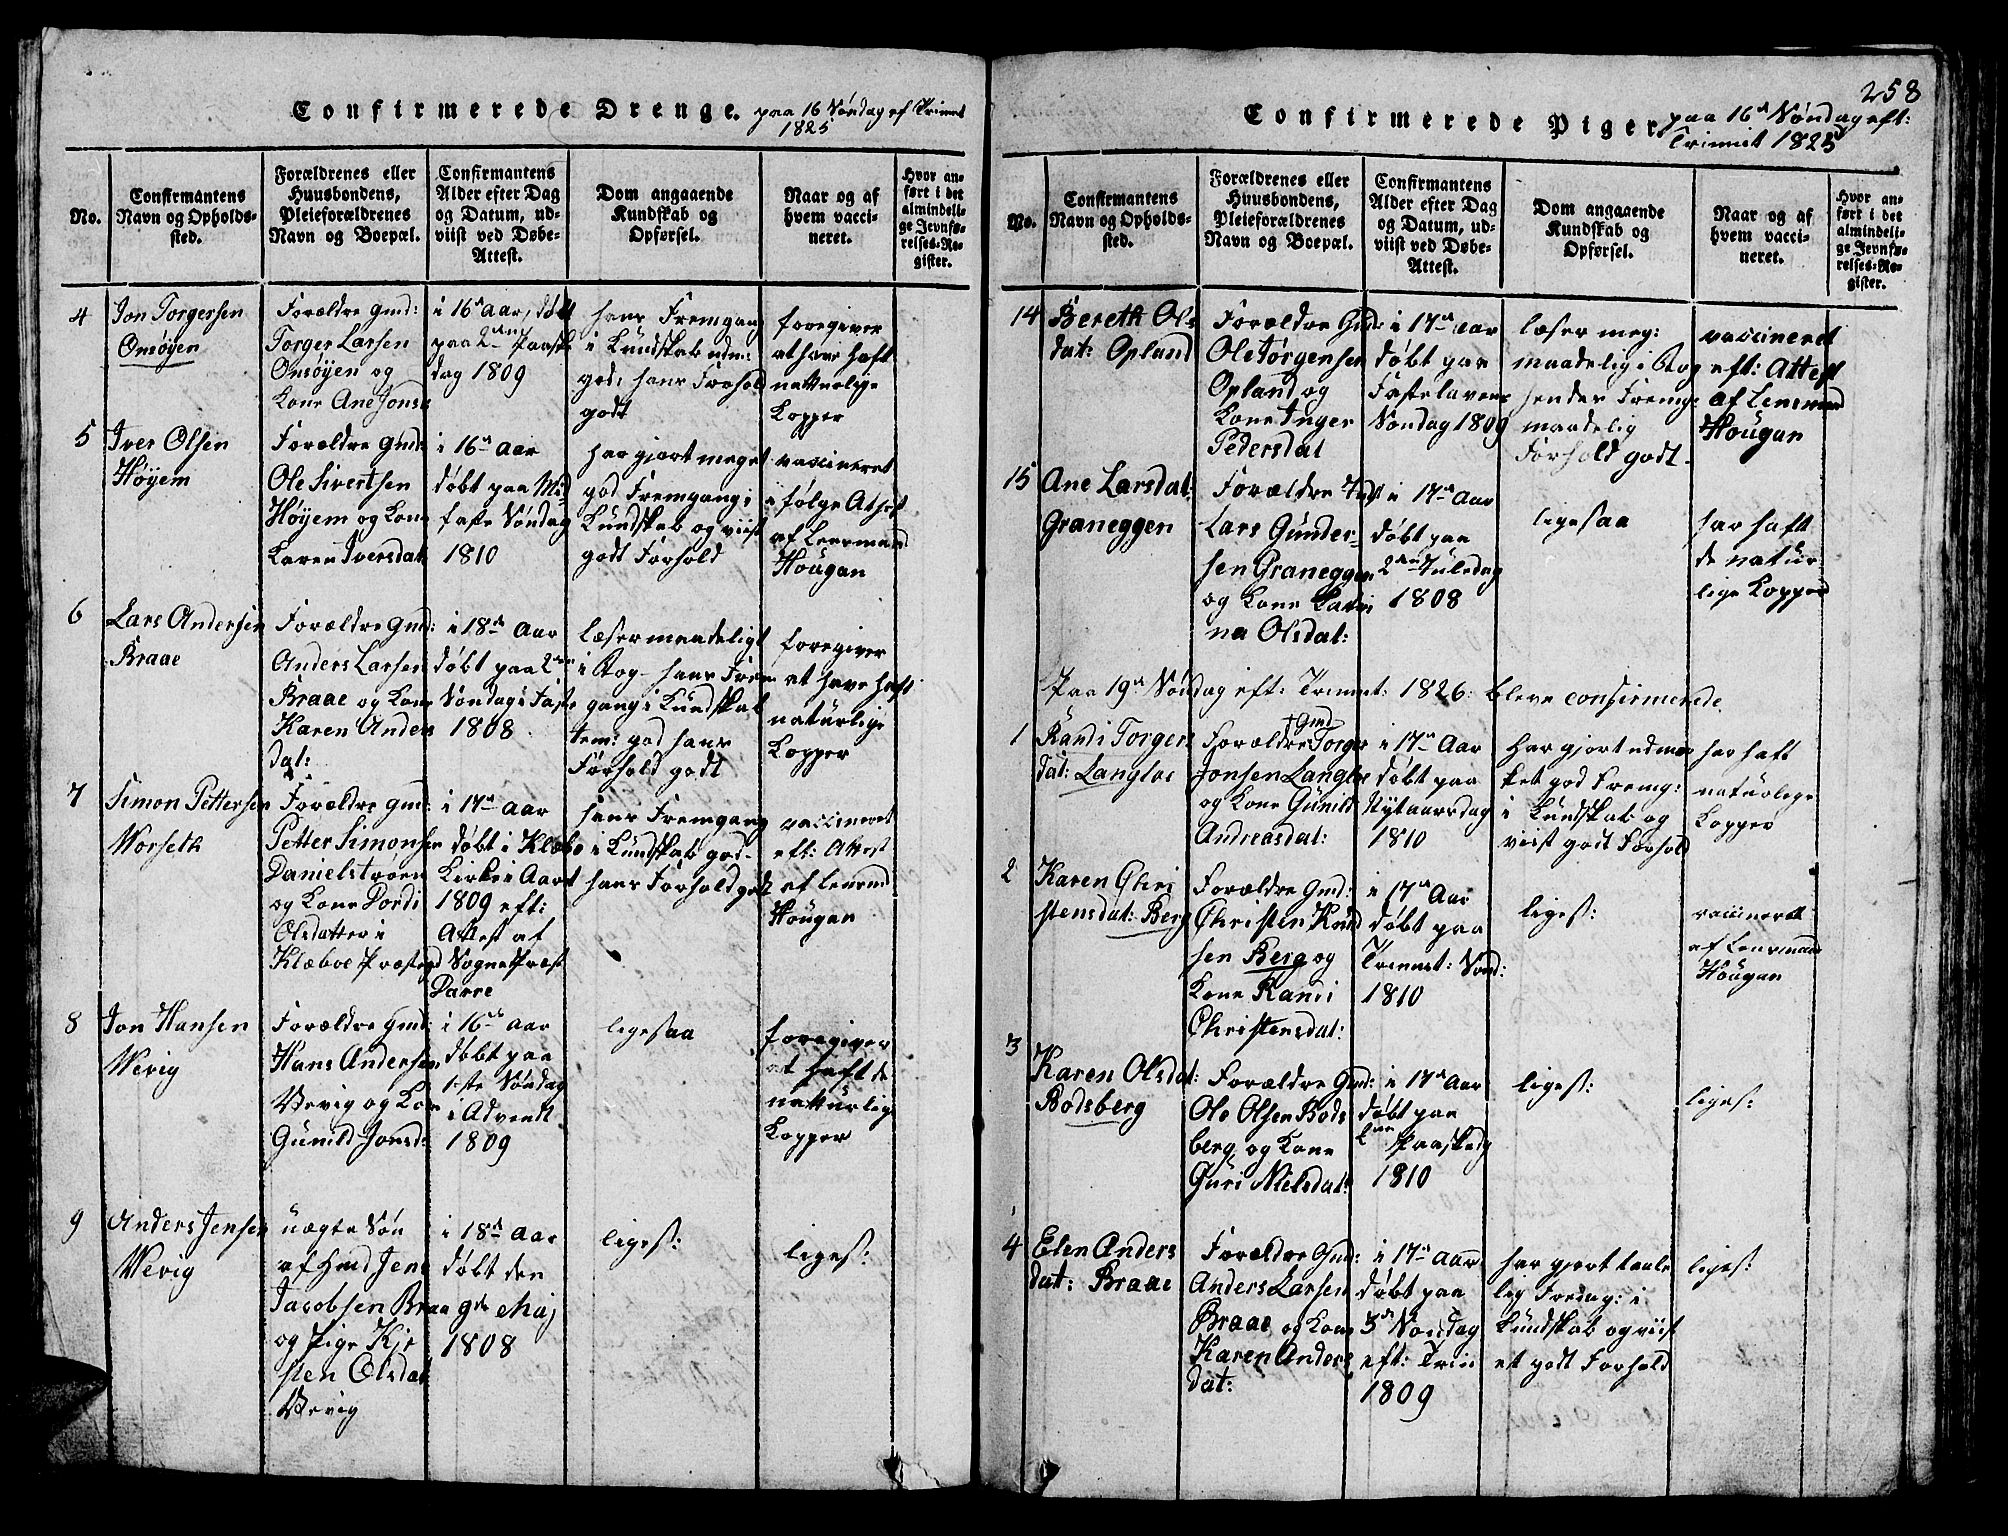 Confirmerede Drenge. paa 16 Søndag ef Trinnit
1825
No.
Confirmantens
Navn og Opholds-
sted.
Forældrenes eller
Huusbondens,
Pleieforældrenes
Navn og Boepæl.
Confirmantens
Alder efter Dag
og Datum, ud-
viist ved Døbe-
Attest.
Dom angaaende
Kundskab og
Opførsel.
Naar og af
hvem vacci-
neret.
Hvor an-
ført i det
almindeli-
ge Jevnfø-
relses-Re-
gister.
4
Jon Torgersen
Onsøyen
Forældre Gmd:
Torger Larsen
Onsøyen og
Kone Ane Jonsd
i 16de Aar, døbt
paa 2den Paaske
dag 1809
hans Fremgang
i Kundskab udm:
god, hans Forhold
godt
foregiver
at have haft
naturlige
Kopper
5
Iver Olsen
Høyem
Forældre Gmd:
Ole Sivertsen
Høyem og Kone
Karen Iversdat:
i 16de Aar
døbt paa Mid
faste Søndag
1810
har gjort meget
god Fremgang i
Kundskab og viist
godt Forhold
vaccineret
i følge Attest
af Lensmand
Hougan
6
Lars Andersen
Braae
Forældre Gmd:
Anders Larsen
Braae og Kone
Karen Anders
dat:
i 18de Aar
døbt paa 2den
Søndag i Faste
1808
læser maadeligt
i Bog hans Frem
gang i Kundskab
tem: god hans
Forhold godt
foregiver
at have haft
naturlige
Kopper
7
Simon Pettersen
Worseth
Forældre Gmd:
Petter Simonsen
Danielstrøen
og Kone Dordi
Olsdatter i
Klæboe Præstegd
i 17de Aar
døbt i Klæbo
Kirke i Aaret
1809 eft:
Attest af
Sogne Præst
Darre
hans Fremgang
i Kundskab god
hans Forhold godt
vaccineret
eft: Attest
af Lensmd
Hougan
8
Jon Hansen
Wevig
Forældre Gmd:
Hans Andersen
Wevig og Kone
Gunild Jonsd:
i 16de Aar
døbt paa
1ste Søndag
i Advent
1809
ligesaa
foregiver
at haft de
naturlige
Kopper
9
Anders Jensen
Wevig
uægte Søn
af Hmd Jens
Jacobsen Braa
og Pige Kje
sten Olsdat
Wevig
i 18de Aar
døbt den
9de Maj
1808
liges:
liges:
258
Confirmerede Piger. paa 16de Søndag eft:
Trinnit 1825
No.
Confirmantens
Navn og Opholds-
sted.
Forældrenes eller
Huusbondens,
Pleieforældrenes
Navn og Boepæl.
Confirmantens
Alder efter Dag
og Datum, ud-
viist ved Døbe-
Attest.
Dom angaaende
Kundskab og
Opførsel.
Naar og af
hvem vacci-
neret.
Hvor an-
ført i det
almindeli-
ge Jevnfø-
relses-Re-
gister.
14
Bereth Ols
dat: Opland
Forældre Gmd:
Ole Jørgensen
Opland og
Kone Inger
Pedersdat
i 17de Aar
døbt paa
Fastelavens
Søndag 1809
læser meg:
maadelig i Bog
hendes Fremg:
maadelig
Forhold godt
vaccineret
eft: Attest
af Lensmand
Hougan
15
Ane Larsdat:
Graneggen
Forældre
Lars Gunder-
sen Graneggen
og Kone
na Olsdat:
i 17de Aar
døbt paa
2den Juledag
1808
ligesaa
har haft
de natur
lige Kopper
Paa 19de Søndag eft: Trinnit: 1826 bleve confirmerede
1
Randi Torgers
dat: Langlos
Gmd
Forældre Torger
Jonsen Langlos
og Kone Gunild
Andreasdat:
i 17de Aar
døbt paa
Nytaarsdag
1810
har gjort udmær
ket god Fremg:
i Kundskab og
viist godt Forhold
har haft
naturlige
Kopper
2
Karen Chri
stensdat: Berg
Forældre Gmd:
Christen Knud
sen Berg og
Kone Randi
Christensdat:
i 17de Aar
døbt paa
Trinnit: Sønd:
1810
liges:
vaccineret
af Lensmand
Hougan
3
Karen Olsdat:
Bodsberg
Forældre Gmd:
Ole Olsen Bods
berg og Kone
Guri Nielsdat:
i 17de Aar
døbt paa
2den Paaskedg
1810
liges:
liges:
4
Elen Anders
dat: Braae
Forældre Gmd:
Anders Larsen
Braae og Kone
Karen Anders
dat:
i 17de Aar
døbt paa
3de Søndag
eft: Trini
1809
har gjort taale
lig Fremg: i
Kundskab og viist
et godt Forhold
liges: